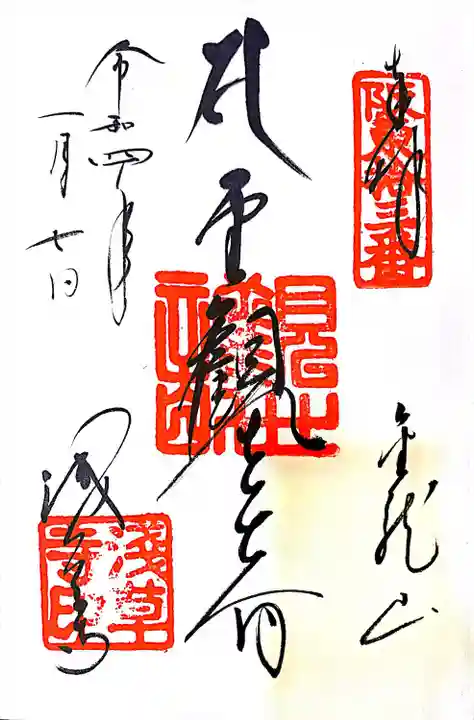 奉拝
阪東第十三番
金龍山
聖観世音
令和四年
一月七日
浅草寺
淺草寺印